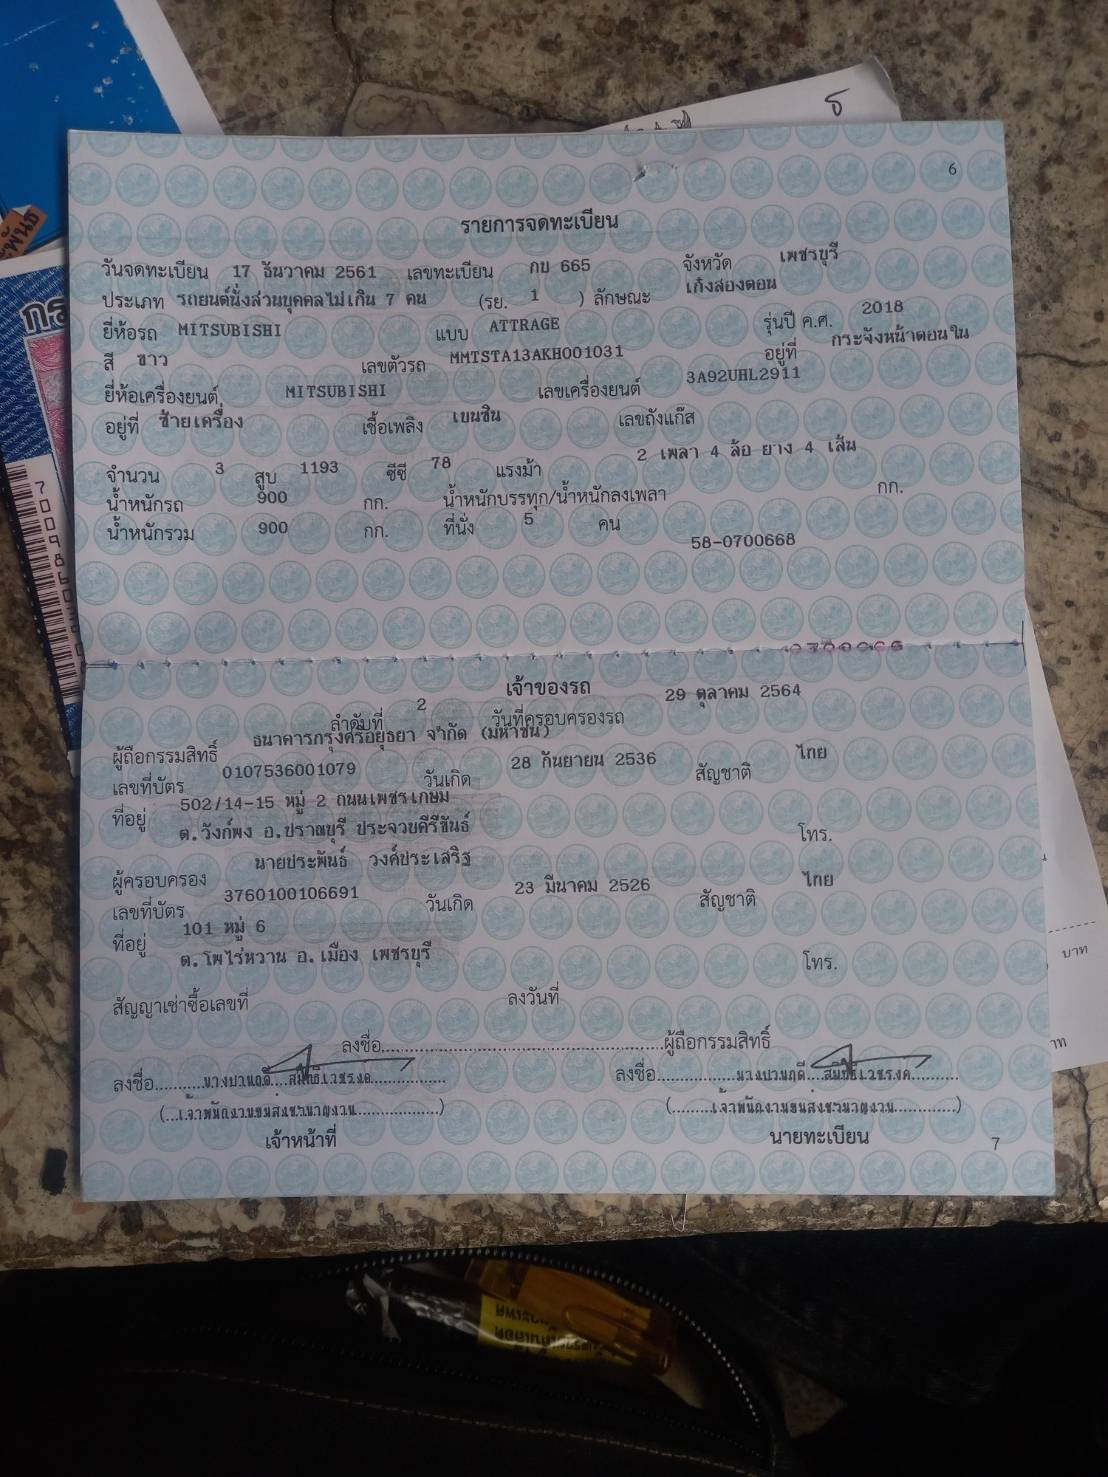 ธ
6
รายการจดทะเบียน
วันจดทะเบียน 17 ธันวาคม 2561 เลขทะเบียน กบ 665 จังหวัด เพชรบุรี
ประเภท รถยนต์นั่งส่วนบุคคลไม่เกิน 7 คน (รย. 1 ) ลักษณะ เก๋งสองตอน
ยี่ห้อรถ MITSUBISHI แบบ ATTRAGE รุ่นปี ค.ศ. 2018
สี ขาว เลขตัวรถ MMTSTA13AKH001031 อยู่ที่ กระจังหน้าตอนใน
ยี่ห้อเครื่องยนต์ MITSUBISHI เลขเครื่องยนต์ 3A92UHL2911
อยู่ที่ ซ้ายเครื่อง เชื้อเพลิง เบนซิน เลขถังแก๊ส
จำนวน 3 สูบ 1193 ซีซี 78 แรงม้า 2 เพลา 4 ล้อ ยาง 4 เส้น
น้ำหนักรถ 900 กก. น้ำหนักบรรทุก/น้ำหนักลงเพลา กก.
น้ำหนักรวม 900 กก. ที่นั่ง 5 คน
58-0700668
เจ้าของรถ
ลำดับที่ 2 วันที่ครอบครองรถ 29 ตุลาคม 2564
ผู้ถือกรรมสิทธิ์ ธนาคารกรุงศรีอยุธยา จำกัด (มหาชน)
เลขที่บัตร 0107536001079 วันเกิด 28 กันยายน 2536 สัญชาติ ไทย
ที่อยู่ 502/14-15 หมู่ 2 ถนนเพชรเกษม
ต.วังก์พง อ.ปราณบุรี ประจวบคีรีขันธ์ โทร.
ผู้ครอบครอง นายประพันธ์ วงค์ประเสริฐ
เลขที่บัตร 3760100106691 วันเกิด 23 มีนาคม 2526 สัญชาติ ไทย
ที่อยู่ 101 หมู่ 6
ต.โพไร่หวาน อ.เมือง เพชรบุรี โทร.
สัญญาเช่าซื้อเลขที่ ลงวันที่
ลงชื่อ ผู้ถือกรรมสิทธิ์
ลงชื่อ ลงชื่อ
(...เจ้าพนักงานขนส่งชำนาญงาน...) (...เจ้าพนักงานขนส่งชำนาญงาน...)
เจ้าหน้าที่ นายทะเบียน
7
บาท